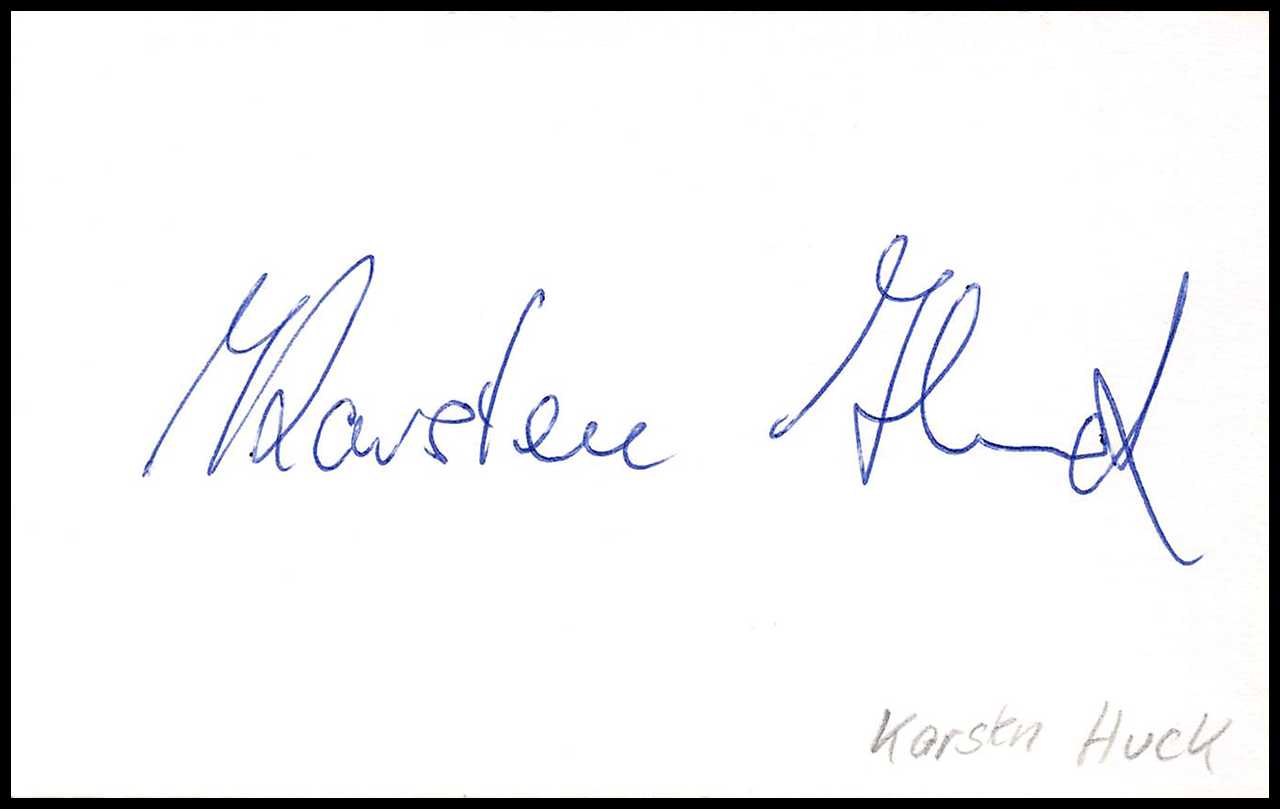 Karsten Huck
Karsten Huck